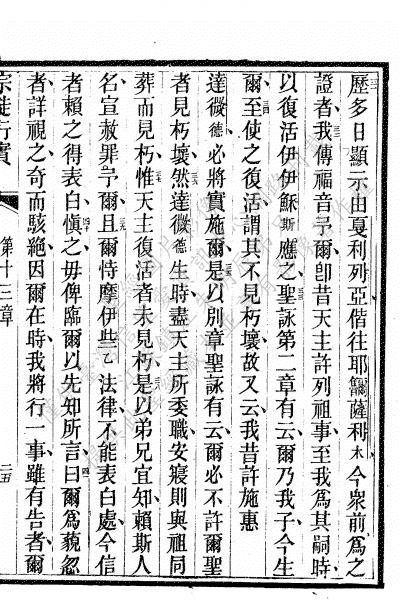 歷多日顯示由戛利列亞偕往耶薩利木今衆前爲之
證者我傳福音予爾卽昔天主許列祖事至我爲其嗣時
以復活伊伊穌斯應之聖詠第二章有云爾乃我子今生
爾至使之復活謂其不見朽壞故又云我昔許施惠
達微德必將實施爾是以别章聖詠有云爾必不許爾聖
者見朽壞然達微德生時盡天主所委職安寢則與祖同
葬而見朽惟天主復活者未見朽是以弟兄宜知賴斯人
名宣赦罪予爾且爾恃摩伊些乙法律不能表白處今信
者賴之得表白愼之毋俾臨爾以先知所言曰爾爲藐忽
者詳視之奇而駭絶因爾在時我將行一事雖有告者爾
宗徒行實 第十三章 二五